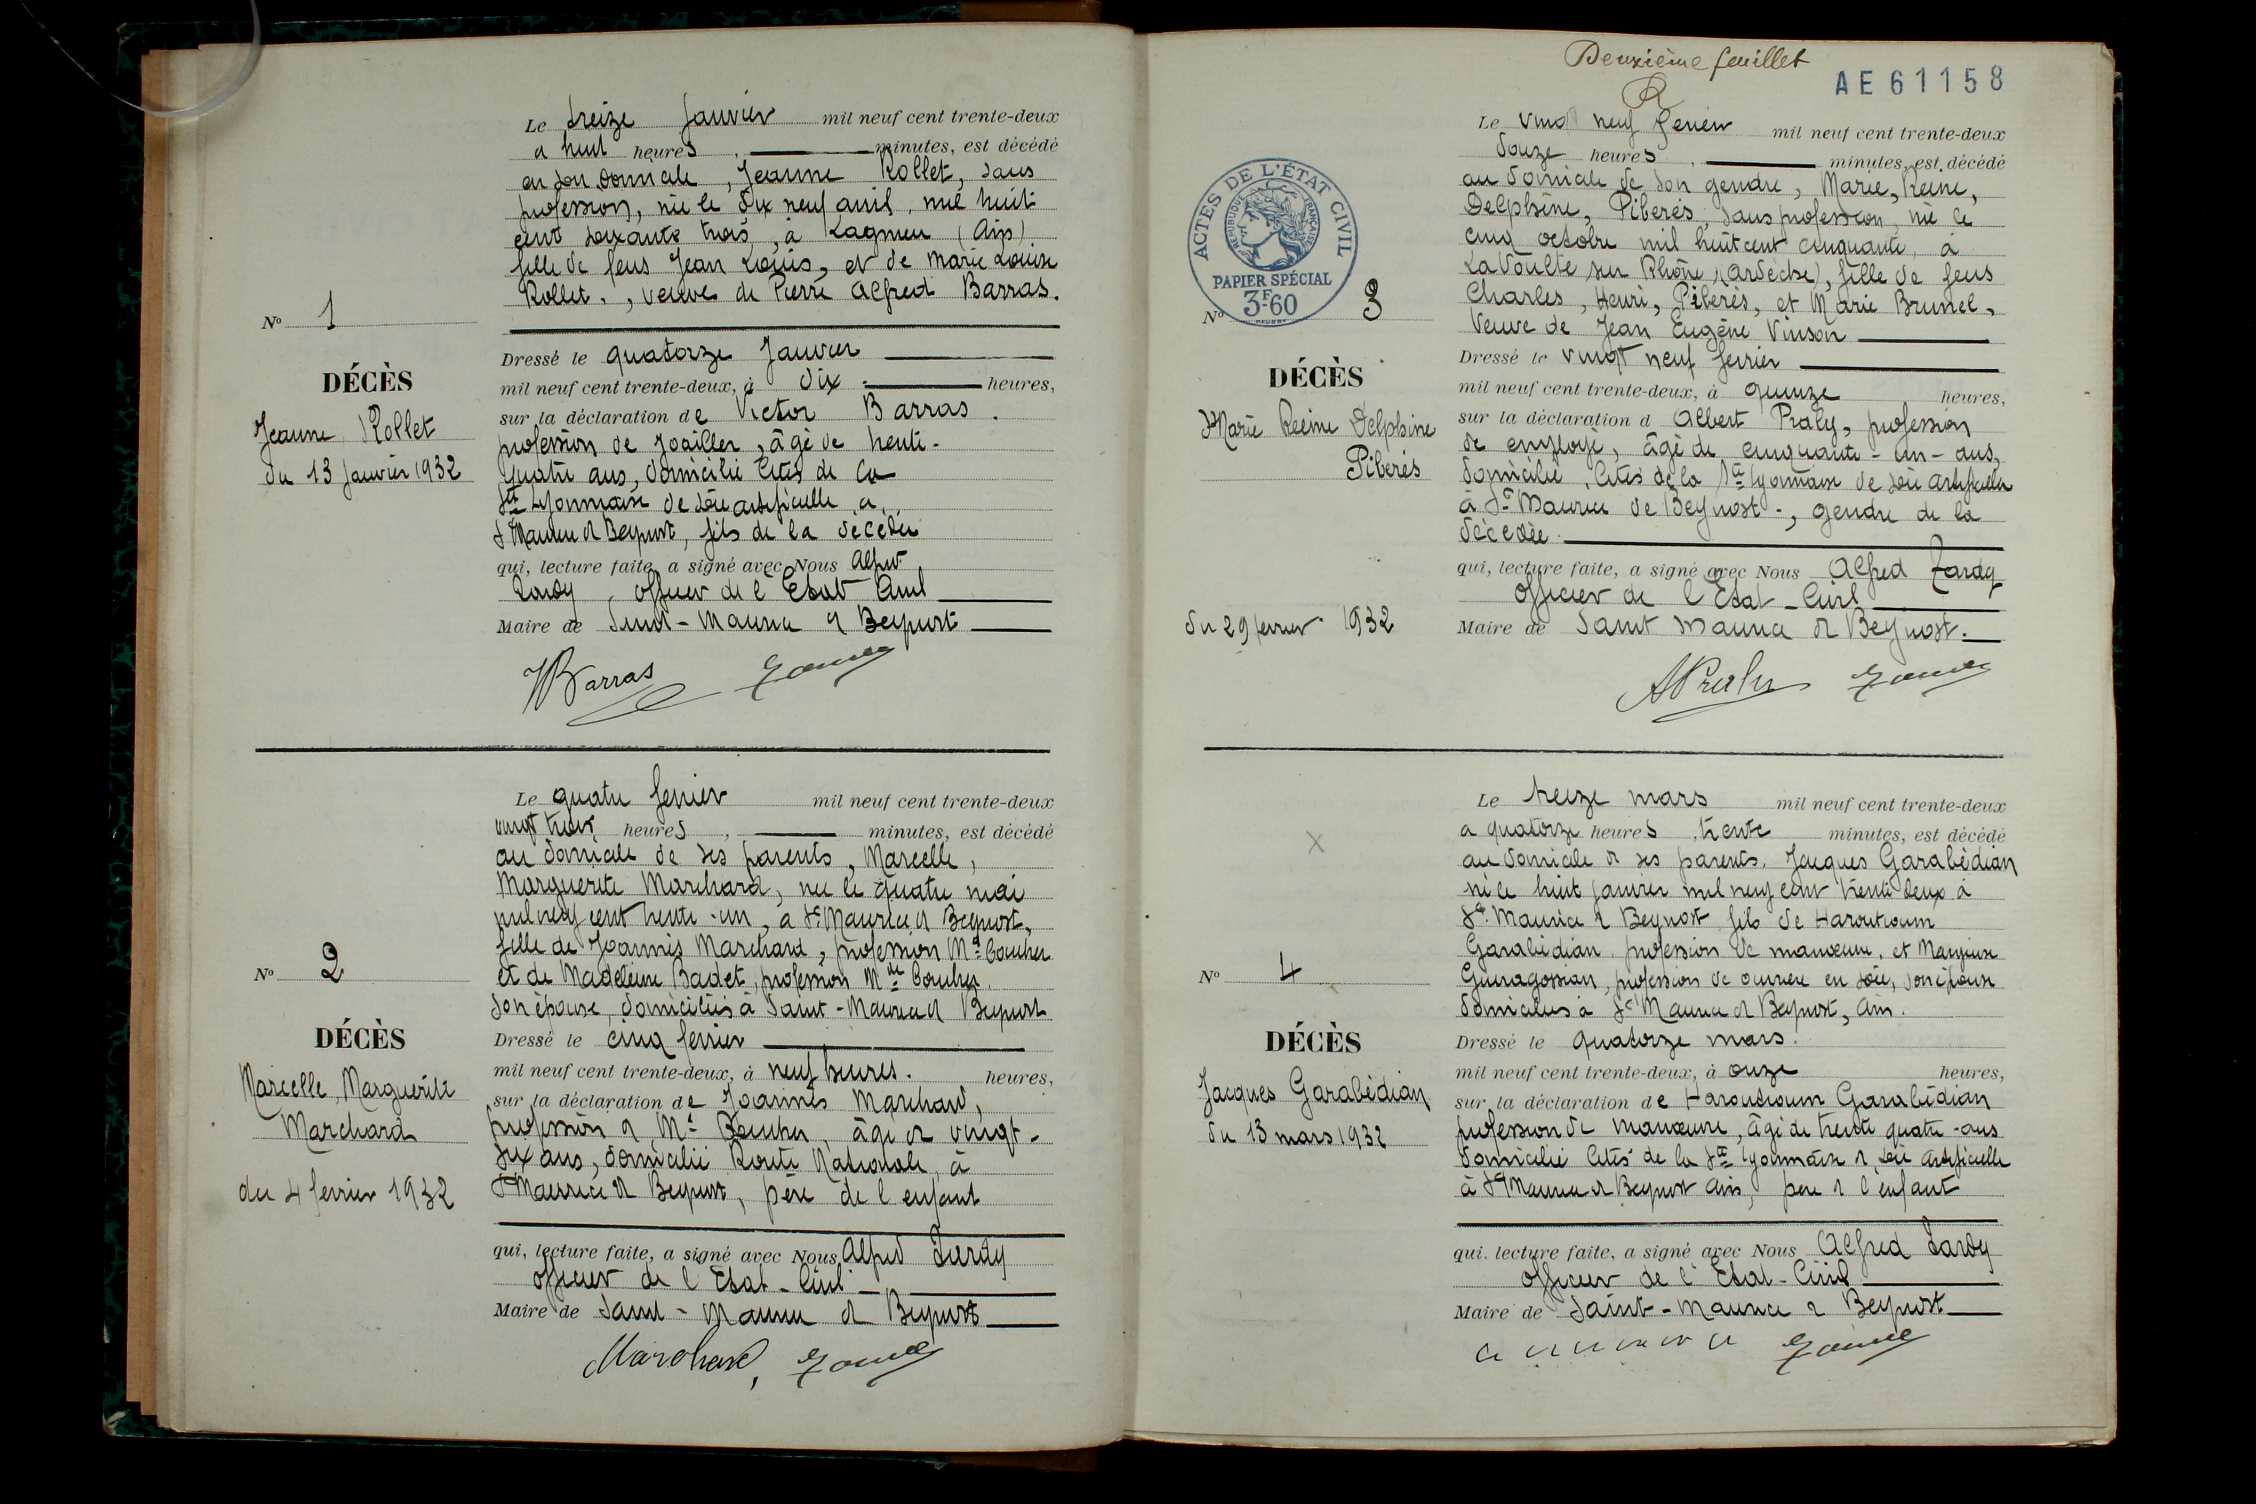 Le treize Janvier mil neuf cent trente-deux
a huit heures, minutes, est décédé
en son domicile, Jeanne Rollet, sans
profession, née le dix neuf avril, mil huit
cent soixante trois, à Lagnieu (Ain)
fille de feus Jean Louis, et de Marie Louise
Rollet, veuve de Pierre Alfred Barras.
No 1
DÉCÈS
Jeanne Rollet
du 13 Janvier 1932
Dressé le quatorze Janvier
mil neuf cent trente-deux, à dix heures,
sur la déclaration de Victor Barras.
profession de Joailler, âgé de trente-
quatre ans, domicilié Cités de la
Sté Lyonnaise de soie artificielle à
St Maurice de Beynost, fils de la décédée
qui, lecture faite, a signé avec Nous Alfred
officier de l'Etat Civil
Maire de Saint-Maurice de Beynost
VBarras
Le quatre fevrier mil neuf cent trente-deux
vingt trois heures, minutes, est décédé
au domicile de ses parents, Marcelle,
Marguerite Marchand, née le quatre mai
mil neuf cent trente-un, à St Maurice de Beynost,
fille de Joannis Marchand, profession Md Boucher
et de Madeleine Badet, profession Mde Boucher
son épouse, domiciliés à Saint-Maurice de Beynost
No 2
DÉCÈS
Marcelle, Marguerite
Marchand
du 4 fevrier 1932
Dressé le cinq fevrier
mil neuf cent trente-deux, à neuf heures. heures,
sur la déclaration de Joannès Marchand,
profession de Md Boucher, âgé de vingt-
six ans, domicilié Route Nationale, à
St Maurice de Beynost, père de l'enfant
qui, lecture faite, a signé avec Nous Alfred
officier de l'Etat-Civil
Maire de Saint-Maurice de Beynost
Marchand,
Deuxième feuillet
AE61158
Le vingt neuf fevrier mil neuf cent trente-deux
douze heures, minutes, est décédé
au domicile de son gendre, Marie, Reine,
Delphine, Piberès, sans profession, née le
cinq octobre mil huit cent cinquante, à
La Voulte sur Rhône (Ardèche), fille de feus
Charles, Henri, Piberès, et Marie Brunel,
Veuve de Jean Eugène Vinson
ACTES DE L'ÉTAT CIVIL
REPUBLIQUE FRANÇAISE
PAPIER SPÉCIAL
3F60
No 3
DÉCÈS
Marie Reine Delphine
Piberès
du 29 fevrier 1932
Dressé le vingt neuf fevrier
mil neuf cent trente-deux, à quinze heures,
sur la déclaration d Albert Praly, profession
de employé, âgé de cinquante-un-ans,
domicilié, Cités de la Sté Lyonnaise de soie artificielle
à St Maurice de Beynost-, gendre de la
décédée.
qui, lecture faite, a signé avec Nous Alfred
officier de l'Etat-Civil
Maire de Saint Maurice de Beynost.
APraly
Le treize mars mil neuf cent trente-deux
a quatorze heures, trente minutes, est décédé
au domicile de ses parents, Jacques Garabédian
né le huit Janvier mil neuf cent trente deux à
St Maurice de Beynost fils de Haroutioum
Garabédian, profession de manoeuvre, et
profession de ouvrière en soie, son épouse
domiciliés à St Maurice de Beynost, Ain.
X
No 4
DÉCÈS
Jacques Garabédian
du 13 mars 1932
Dressé le quatorze mars.
mil neuf cent trente-deux, à onze heures,
sur la déclaration de Haroutioum Garabédian
profession de manoeuvre, âgé de trente quatre-ans
domicilié Cités de la Sté Lyonnaise de soie artificielle
à St Maurice de Beynost Ain, père de l'enfant
qui, lecture faite, a signé avec Nous Alfred
officier de l'Etat-Civil
Maire de Saint-Maurice de Beynost